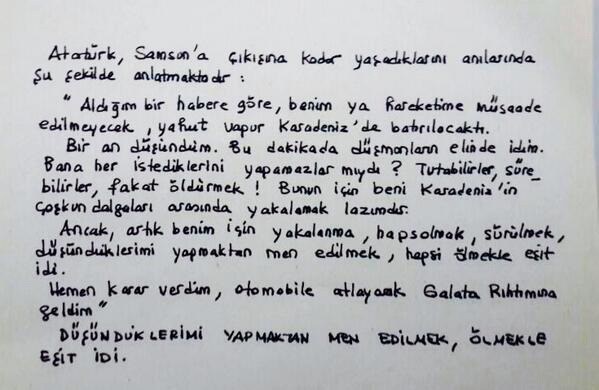 Atatürk, Samsun'a çıkışına kadar yaşadıklarını anılarında
şu şekilde anlatmaktadır :
" Aldığım bir habere göre, benim ya hareketime müsaade
edilmeyecek, yahut vapur Karadeniz'de batırılacaktı.
Bir an düşündüm. Bu dakikada düşmanların elinde idim.
Bana her istediklerini yapamazlar mıydı ? Tutabilirler, süre_
bilirler, fakat öldürmek ! Bunun için beni Karadeniz'in
çoşkun dalgaları arasında yakalamak lazımdır.
Ancak, artık benim için yakalanma, hapsolmak, sürülmek,
düşündüklerimi yapmaktan men edilmek, hepsi ölmekle eşit
idi.
Hemen karar verdim, otomobile atlayarak Galata Rıhtımına
geldim"
DÜŞÜNDÜKLERİMİ YAPMAKTAN MEN EDİLMEK, ÖLMEKLE
EŞİT İDİ.